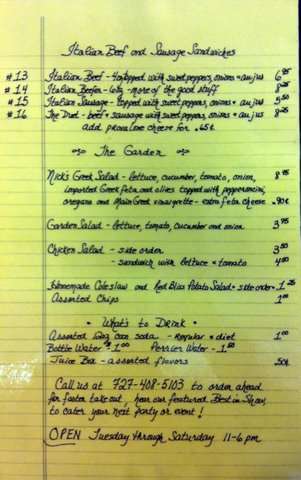 Italian Beef and Sausage Sandwiches
#13 Italian Beef - 4oz topped with sweet peppers, onions & au jus 6.95
#14 Italian Beefer - 6oz - more of the good stuff 8.25
#15 Italian Sausage - topped with sweet peppers, onions & au jus 5.50
#16 The Duet - beef & sausage with sweet peppers, onions & au jus 8.25
add provolone cheese for .65¢
The Garden
Nick's Greek Salad - lettuce, cucumber, tomato, onion, 8.95
imported Greek feta and olives topped with pepperoncini,
oregano and Main Greek vinaigrette - extra feta cheese .90¢
Garden Salad - lettuce, tomato, cucumber and onion 3.75
Chicken Salad - side order 3.50
- sandwich with lettuce & tomato 4.50
Homemade Coleslaw and Red Bliss Potato Salad • side order • 1.25
Assorted Chips 1.00
• What's to Drink •
Assorted 12oz can soda - regular & diet 1.00
Bottle Water $1.00 Perrier Water - 1.50
Juice Box - assorted flavors .50¢
Call us at 727-408-5103 to order ahead
for faster take out, hear our featured Best in Show,
to cater your next party or event!
OPEN Tuesday through Saturday 11-6 pm